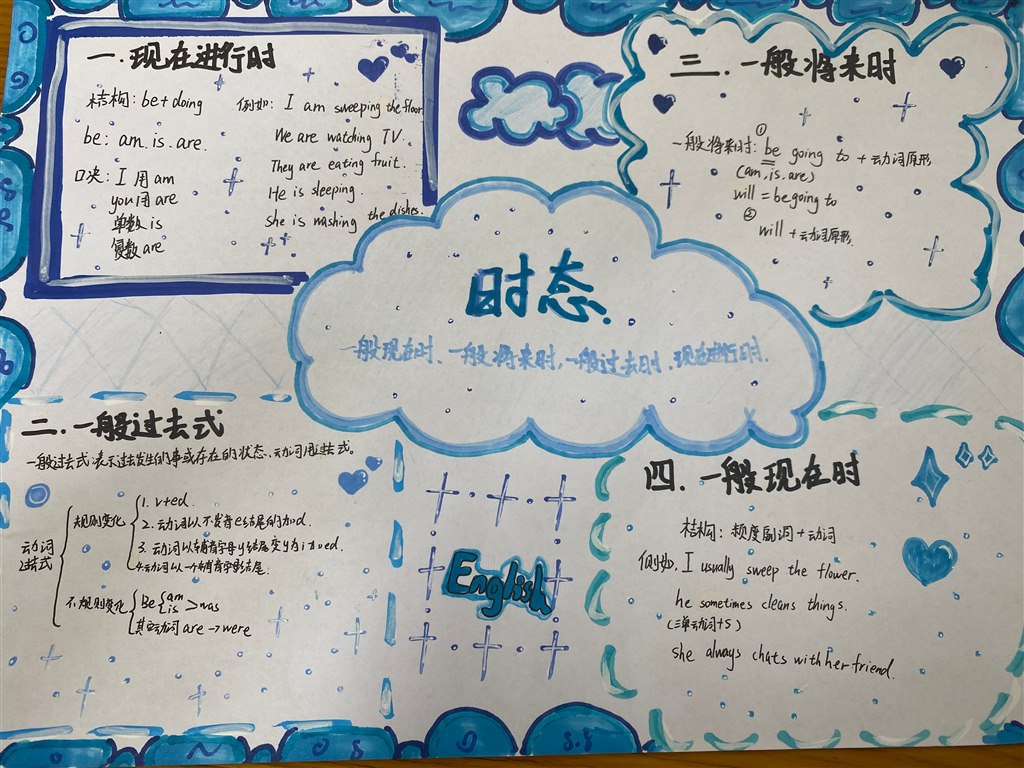 一.现在进行时
结构: be+doing
be: am.is.are.
口决: I 用 am
you用 are
单数 is
复数 are
例如: I am sweeping the floor
We are watching TV.
They are eating fruit.
He is sleeping.
she is washing the dishes.
三.一般将来时
一般将来时: ① be going to +动词原形
(am, is, are)
will = be going to
② will +动词原形.
时态.
一般现在时、一般将来时,一般过去时、现在进行时.
二.一般过去式
一般过去式表示过去发生的事或存在的状态、动词用过去式。
动词
过去式
规则变化
1. v+ed.
2. 动词以不发音e结尾的加d.
3. 动词以辅音字母y结尾变y为i加ed.
4.动词以一个辅音字母结尾.
不规则变化
Be { am is > was
其它动词 are → were
English
四.一般现在时
结构: 频度副词+动词
例如, I usually sweep the flower.
he sometimes cleans things.
(三单动词+s)
she always chats with her friend.